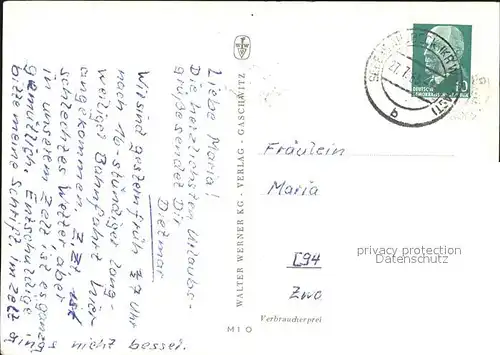 Liebe Maria!
Die herzlichsten Urlaubs-
grüße sendet Dir
Dietmar
Wir sind gestern früh 1/2 7 Uhr
nach 16-stündiger lang-
weiliger Bahnfahrt hier
angekommen. Z.Zt. ist
schlechtes Wetter, aber
in unserem Zelt ist es ganz
gemütlich. Entschuldige
bitte meine Schrift, im Zelt
nicht besser.
WALTER WERNER KG · VERLAG · GASCHWITZ
M1 O
DEUTSCHE
DEMOKRATISCHE REPUBLIK
10
b
Fräulein
Maria
privacy protection
Datenschutz
Zwo
Verbraucherprei